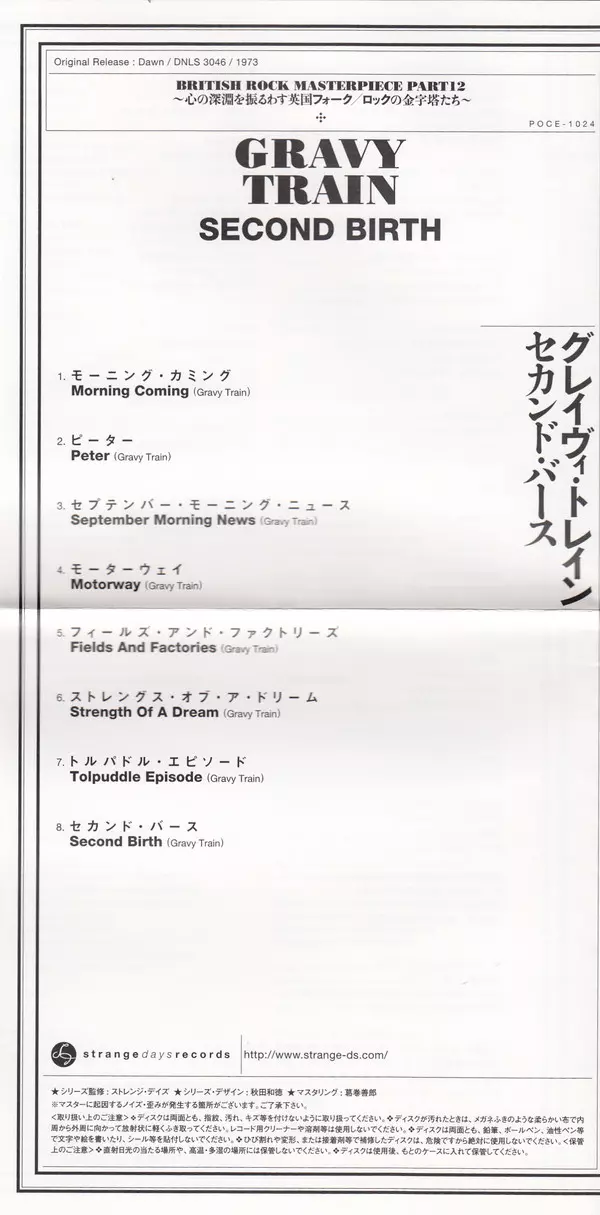 Original Release : Dawn / DNLS 3046 / 1973
BRITISH ROCK MASTERPIECE PART12
〜心の深淵を振るわす英国フォーク／ロックの金字塔たち〜
POCE-1024
GRAVY
TRAIN
SECOND BIRTH
グレイヴィ・トレイン
セカンド・バース
1. モーニング・カミング
Morning Coming (Gravy Train)
2. ピーター
Peter (Gravy Train)
3. セプテンバー・モーニング・ニュース
September Morning News (Gravy Train)
4. モーターウェイ
Motorway (Gravy Train)
5. フィールズ・アンド・ファクトリーズ
Fields And Factories (Gravy Train)
6. ストレングス・オブ・ア・ドリーム
Strength Of A Dream (Gravy Train)
7. トルパドル・エピソード
Tolpuddle Episode (Gravy Train)
8. セカンド・バース
Second Birth (Gravy Train)
strangedaysrecords
http://www.strange-ds.com/
★シリーズ監修：ストレンジ・デイズ ★シリーズ・デザイン：秋田和徳 ★マスタリング：葛巻善郎
※マスターに起因するノイズ・歪みが発生する箇所がございます。ご了承下さい。
<取り扱い上のご注意>❖ディスクは両面とも、指紋、汚れ、キズ等を付けないように取り扱ってください。❖ディスクが汚れたときは、メガネふきのような柔らかい布で内
周から外周に向かって放射状に軽くふき取ってください。レコード用クリーナーや溶剤等は使用しないでください。❖ディスクは両面とも、鉛筆、ボールペン、油性ペン等
で文字や絵を書いたり、シール等を貼付しないでください。❖ひび割れや変形、または接着剤等で補修したディスクは、危険ですから絶対に使用しないでください。<保管
上のご注意>❖直射日光の当たる場所や、高温・多湿の場所には保管しないでください。❖ディスクは使用後、もとのケースに入れて保管してください。